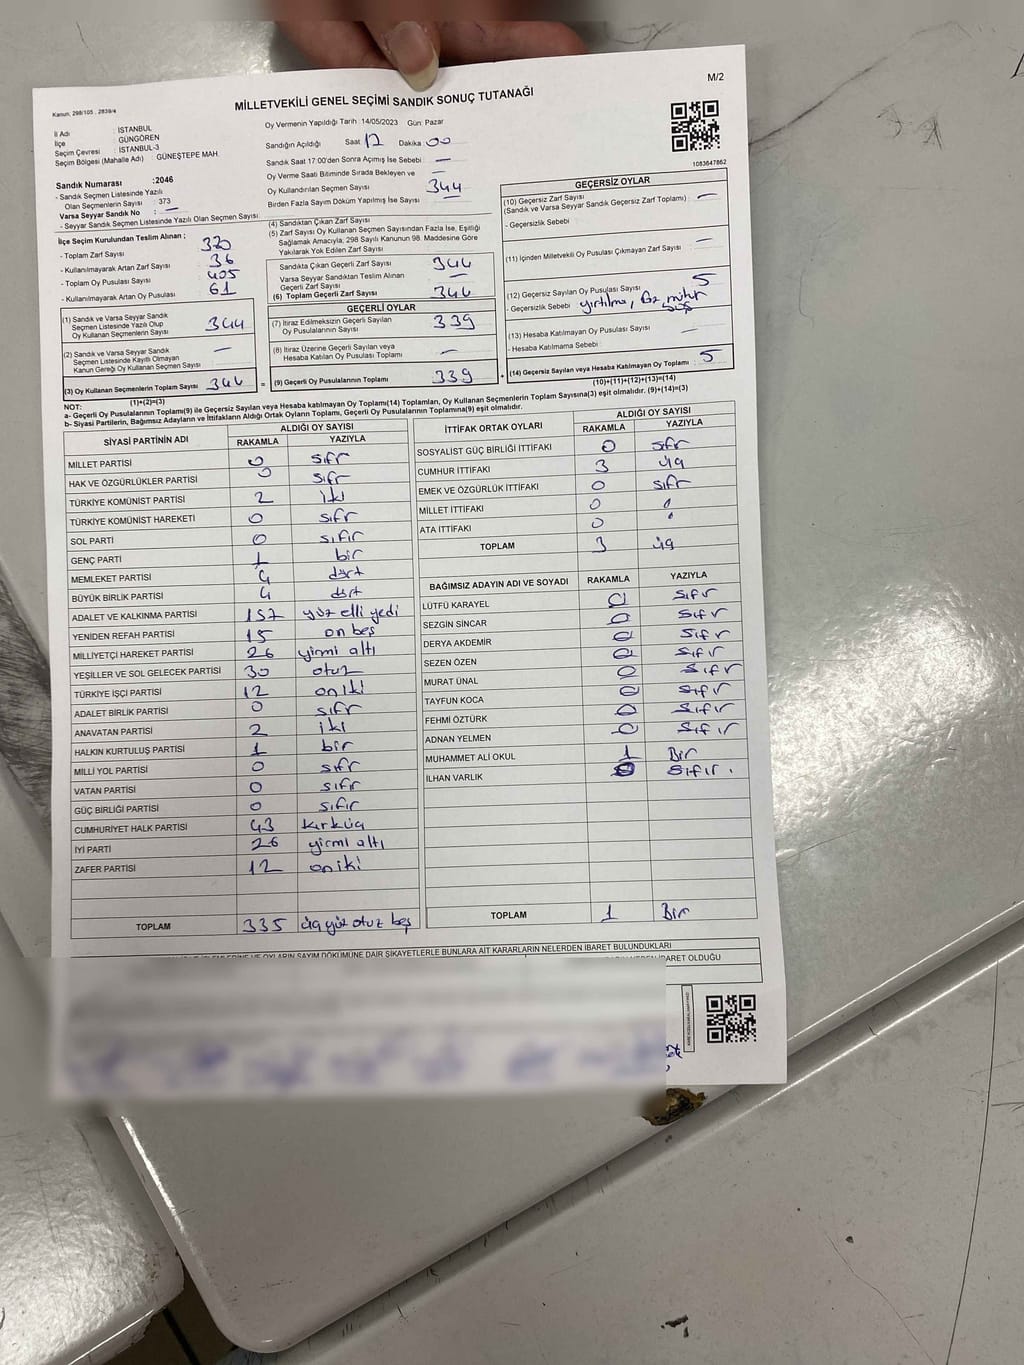 M/2
Kanun, 298/105 , 2839/4
MİLLETVEKİLİ GENEL SEÇİMİ SANDIK SONUÇ TUTANAĞI
İl Adı : İSTANBUL
İlçe : GÜNGÖREN
Seçim Çevresi : İSTANBUL-3
Seçim Bölgesi (Mahalle Adı) GÜNEŞTEPE MAH.
Sandık Numarası :2046
- Sandık Seçmen Listesinde Yazılı
Olan Seçmenlerin Sayısı : 373
Varsa Seyyar Sandık No : —
- Seyyar Sandık Seçmen Listesinde Yazılı Olan Seçmen Sayısı
Oy Vermenin Yapıldığı Tarih :14/05/2023 Gün: Pazar
Sandığın Açıldığı Saat 17 Dakika :00
Sandık Saat 17:00'den Sonra Açımış İse Sebebi : —
Oy Verme Saati Bitiminde Sırada Bekleyen ve —
Oy Kullandırılan Seçmen Sayısı : 344
Birden Fazla Sayım Döküm Yapılmış İse Sayısı : —
1083647862
İlçe Seçim Kurulundan Teslim Alınan ;
- Toplam Zarf Sayısı : 320
- Kullanılmayarak Artan Zarf Sayısı : 36
- Toplam Oy Pusulası Sayısı : 405
- Kullanılmayarak Artan Oy Pusulası : 61
(1) Sandık ve Varsa Seyyar Sandık
Seçmen Listesinde Yazılı Olup
Oy Kullanan Seçmenlerin Sayısı : 344
(2) Sandık ve Varsa Seyyar Sandık
Seçmen Listesinde Kayıtlı Olmayan
Kanun Gereği Oy Kullanan Seçmen Sayısı : —
(3) Oy Kullanan Seçmenlerin Toplam Sayısı : 344
(1)+(2)=(3)
(4) Sandıktan Çıkan Zarf Sayısı
(5) Zarf Sayısı Oy Kullanan Seçmen Sayısından Fazla İse, Eşitliği
Sağlamak Amacıyla, 298 Sayılı Kanunun 98. Maddesine Göre
Yakılarak Yok Edilen Zarf Sayısı
Sandıkta Çıkan Geçerli Zarf Sayısı : 344
Varsa Seyyar Sandıktan Teslim Alınan
Geçerli Zarf Sayısı : —
(6) Toplam Geçerli Zarf Sayısı : 344
GEÇERLİ OYLAR
(7) İtiraz Edilmeksizin Geçerli Sayılan
Oy Pusulalarının Sayısı : 339
(8) İtiraz Üzerine Geçerli Sayılan veya
Hesaba Katılan Oy Pusulası Toplamı : —
= (9) Geçerli Oy Pusulalarının Toplamı : 339 +
GEÇERSİZ OYLAR
(10) Geçersiz Zarf Sayısı
(Sandık ve Varsa Seyyar Sandık Geçersiz Zarf Toplamı) : —
- Geçersizlik Sebebi :
(11) İçinden Milletvekili Oy Pusulası Çıkmayan Zarf Sayısı : —
(12) Geçersiz Sayılan Oy Pusulası Sayısı : 5
- Geçersizlik Sebebi : yırtılma,
(13) Hesaba Katılmayan Oy Pusulası Sayısı : —
- Hesaba Katılmama Sebebi :
(14) Geçersiz Sayılan veya Hesaba Katılmayan Oy Toplamı : 5
(10)+(11)+(12)+(13)=(14)
NOT:
a- Geçerli Oy Pusulalarının Toplamı(9) ile Geçersiz Sayılan veya Hesaba katılmayan Oy Toplamı(14) Toplamları, Oy Kullanan Seçmenlerin Toplam Sayısına(3) eşit olmalıdır. (9)+(14)=(3)
b- Siyasi Partilerin, Bağımsız Adayların ve İttifakların Aldığı Ortak Oyların Toplamı, Geçerli Oy Pusulalarının Toplamına(9) eşit olmalıdır.
SİYASİ PARTİNİN ADI ALDIĞI OY SAYISI
RAKAMLA YAZIYLA
MİLLET PARTİSİ 0 sıfır
HAK VE ÖZGÜRLÜKLER PARTİSİ 0 sıfır
TÜRKİYE KOMÜNİST PARTİSİ 2 iki
TÜRKİYE KOMÜNİST HAREKETİ 0 sıfır
SOL PARTİ 0 sıfır
GENÇ PARTİ 1 bir
MEMLEKET PARTİSİ 4 dört
BÜYÜK BİRLİK PARTİSİ 4 dört
ADALET VE KALKINMA PARTİSİ 157 yüz elli yedi
YENİDEN REFAH PARTİSİ 15 on beş
MİLLİYETÇİ HAREKET PARTİSİ 26 yirmi altı
YEŞİLLER VE SOL GELECEK PARTİSİ 30 otuz
TÜRKİYE İŞÇİ PARTİSİ 12 oniki
ADALET BİRLİK PARTİSİ 0 sıfır
ANAVATAN PARTİSİ 2 iki
HALKIN KURTULUŞ PARTİSİ 1 bir
MİLLİ YOL PARTİSİ 0 sıfır
VATAN PARTİSİ 0 sıfır
GÜÇ BİRLİĞİ PARTİSİ 0 sıfır
CUMHURİYET HALK PARTİSİ 43 kırküç
İYİ PARTİ 26 yirmi altı
ZAFER PARTİSİ 12 oniki
TOPLAM 335 üçyüz otuz beş
İTTİFAK ORTAK OYLARI ALDIĞI OY SAYISI
RAKAMLA YAZIYLA
SOSYALİST GÜÇ BİRLİĞİ İTTİFAKI 0 sıfır
CUMHUR İTTİFAKI 3 üç
EMEK VE ÖZGÜRLÜK İTTİFAKI 0 sıfır
MİLLET İTTİFAKI 0
ATA İTTİFAKI 0
TOPLAM 3 üç
BAĞIMSIZ ADAYIN ADI VE SOYADI RAKAMLA YAZIYLA
LÜTFÜ KARAYEL 0 Sıfır
SEZGİN SİNCAR 0 Sıfır
DERYA AKDEMİR 0 Sıfır
SEZEN ÖZEN 0 Sıfır
MURAT ÜNAL 0 Sıfır
TAYFUN KOCA 0 Sıfır
FEHMİ ÖZTÜRK 0 Sıfır
ADNAN YELMEN 0 Sıfır
MUHAMMET ALİ OKUL 1 Bir
İLHAN VARLIK 0 Sıfır.
TOPLAM 1 Bir
OYLARIN SAYIM DÖKÜMÜNE DAİR ŞİKAYETLERLE BUNLARA AİT KARARLARIN NELERDEN İBARET BULUNDUKLARI
İBARET OLDUĞU